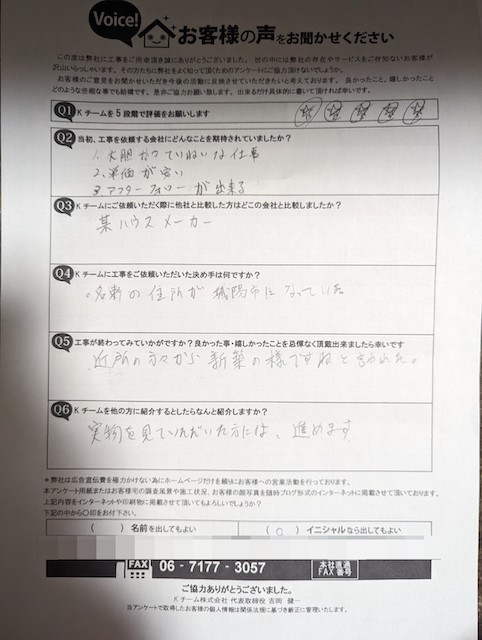 Voice!
お客様の声をお聞かせください
この度は弊社に工事をご用命頂き誠にありがとうございました。世の中には弊社の存在やサービスをご存知ないお客様が
沢山いらっしゃいます。その方たちに弊社をよく知って頂くためのアンケートにご協力頂けないでしょうか。
お客様のご意見をお聞かせいただき今後の活動に反映させていただきたいと考えております。良かったこと、嬉しかったこと
どのような些細な事でも結構です。是非ご協力お願い致します。出来るだけ具体的に書いて頂ければ幸いです。
Q1 Kチームを5段階で評価をお願いします
Q2 当初、工事を依頼する会社にどんなことを期待されていましたか?
1、大胆かつていねいな仕事
2、単価が安い
3 アフターフォローが出来る
Q3 Kチームにご依頼いただく際に他社と比較した方はどこの会社と比較しましたか?
某ハウスメーカー
Q4 Kチームに工事をご依頼いただいた決め手は何ですか?
。名刺の住所が城陽市になっていた
Q5 工事が終わってみていかがですか?良かった事・嬉しかったことを忌憚なく頂戴出来ましたら幸いです
近所の方々から新築の様ですねと言われた。
Q6 Kチームを他の方に紹介するとしたらなんと紹介しますか?
実物を見ていただいた方には、進めます
*弊社は広告宣伝費を極力かけない為にホームページだけを頼りにお客様への営業活動を行っております。
本アンケート用紙またはお客様宅の調査風景や施工状況、お客様の顔写真を随時ブログ形式のインターネットに掲載させて頂いております。
上記内容をインターネットや印刷物に掲載させて頂いてもよろしいでしょうか?
下記の中から○印をお付下さい。
( ) 名前を出してもよい ( ○ ) イニシャルなら出してもよい
FAX 06-7177-3057 本社直通 FAX番号
ご協力ありがとうございました。
Kチーム株式会社 代表取締役 吉岡 健一
当アンケートで取得したお客様の個人情報は関係法規に基づき厳正に管理いたします。